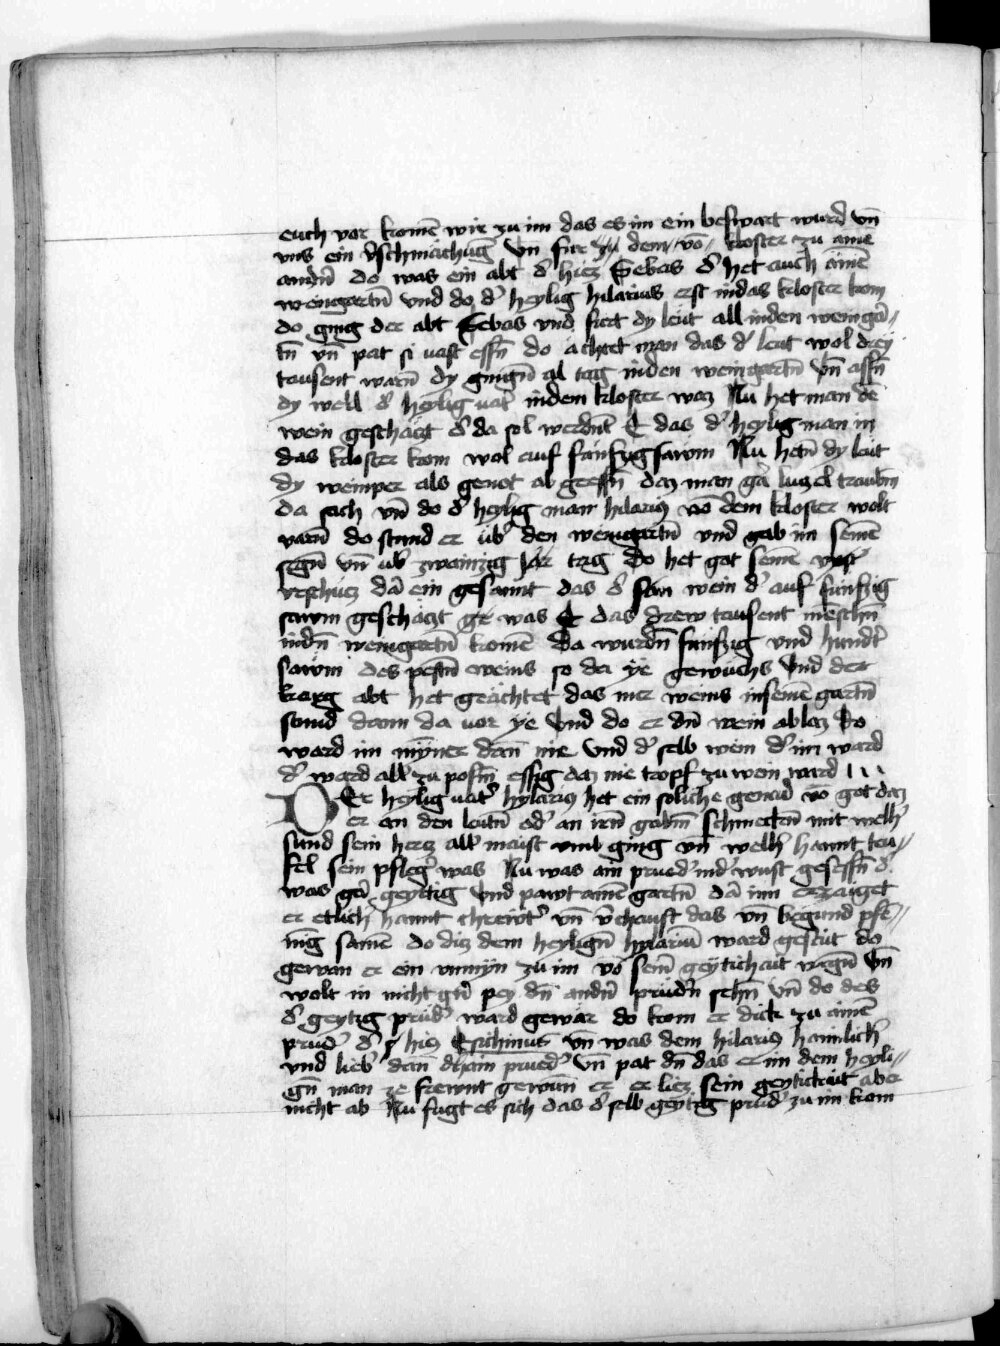 euch vor komē wir zu im das es im ein beswart wurd vn̄
vns ein v̄schmächūg Vn fūr zu dem vo kloster zu aīne
andn̄ do was ein abt d' hiez Sebas d' het auch ainē
weingartn̄ vnd do d' heylig hilarius erst in das kloster kom
do ging der abt Sebas vnd furt dy leut all in den weingā//
tn̄ vn̄ pat si vast essn̄ do achtet man das d' leut wol drey
tausent warn̄ dy gingn̄ al tag in den weingartn̄ vn̄ assn̄
dy weil d' heylig vat' in dem kloster waz Nu het man dē
wein geschäczt d' da sol werdn̄ E das d' heylig man in
das kloster kom wol auf funfzyg sawm Nu hetn̄ dy leut
dy weinper als genot ab gessn̄ daz man gā luczel traubm̄
da sach vn̄ do d' heylig man hilarig vō dem kloster wolt
varn̄ do stund er üb' den weingartn̄ vnd gab im seinē
segn̄ vn̄ üb' zwainzig jar tag do het got seinē
dā ein gesamt das d' wein d' auf funfzig
sawm geschäczt was E das drew tausent mēschn̄
indn̄ weingartn̄ komē da wurdn̄ funfzig vnd hundt'
sawm des pestn̄ weins so da ye gewuchs Vnd der
karg abt het geächtet das mer weins in seinē gartn̄
stund dann da vor ye Vnd do er dn̄ wein ablaz do
ward im mynner dan nie Vnd d' selb wein d' im ward
d' ward all' zu posm̄ essig daz nie tropf zu wein ward
DEr heylig vat' hylarig het ein soliche genad vō got daz
er an den leutn̄ od' an irn̄ gabm̄ schmecktn̄ mit welh'
sund sein hercz all' maist vmb ging vn̄ welh' hannt teu//
fel sein pfleg' was Nu was ain prued' in d' wust gesessn̄ d'
was gā geytig vnd pawt ainē gartn̄ dā inn er zauget
er etlich' hannt chrewt' vn̄ v̄chauft das vn̄ begund pfē//
nig samē do diz dem heylign̄ hylariū ward gesait do
gewan er ein vnmyn zu im vō seīn geytichait wegn̄ Vn̄
wolt in nicht gn̄ pey dn̄ andn̄ prüdn̄ sehn̄ vn̄ do des
d' geytig prüd' ward gewar do kom er dick zu ainē
prud' d' hies Esichinus vn̄ was dem hilarig haimlich'
vnd lieb' dan chain prued' Vn̄ pat dn̄ das er im dem heyli//
gn̄ man ze frewnt gewun̄ er er liez sein geytichait aber
nicht ab Nu fugt es sich das d' selb geytig prud' zu im kom